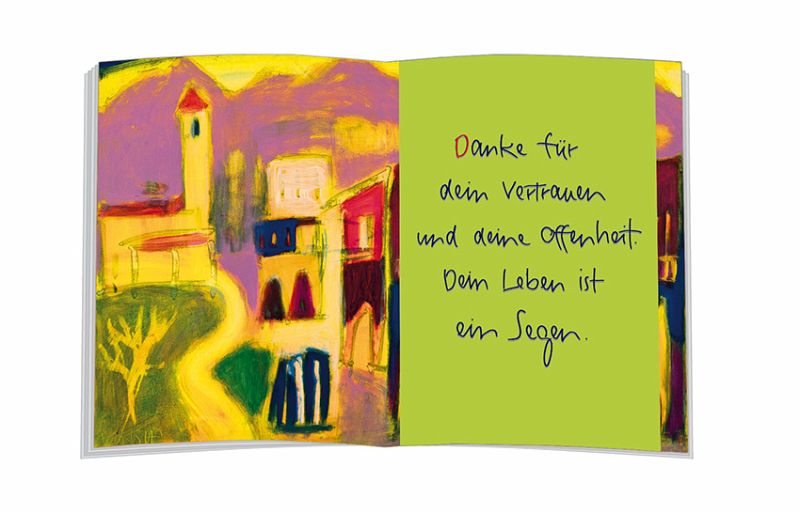 Danke für
dein Vertrauen
und deine Offenheit.
Dein Leben ist
ein Segen.